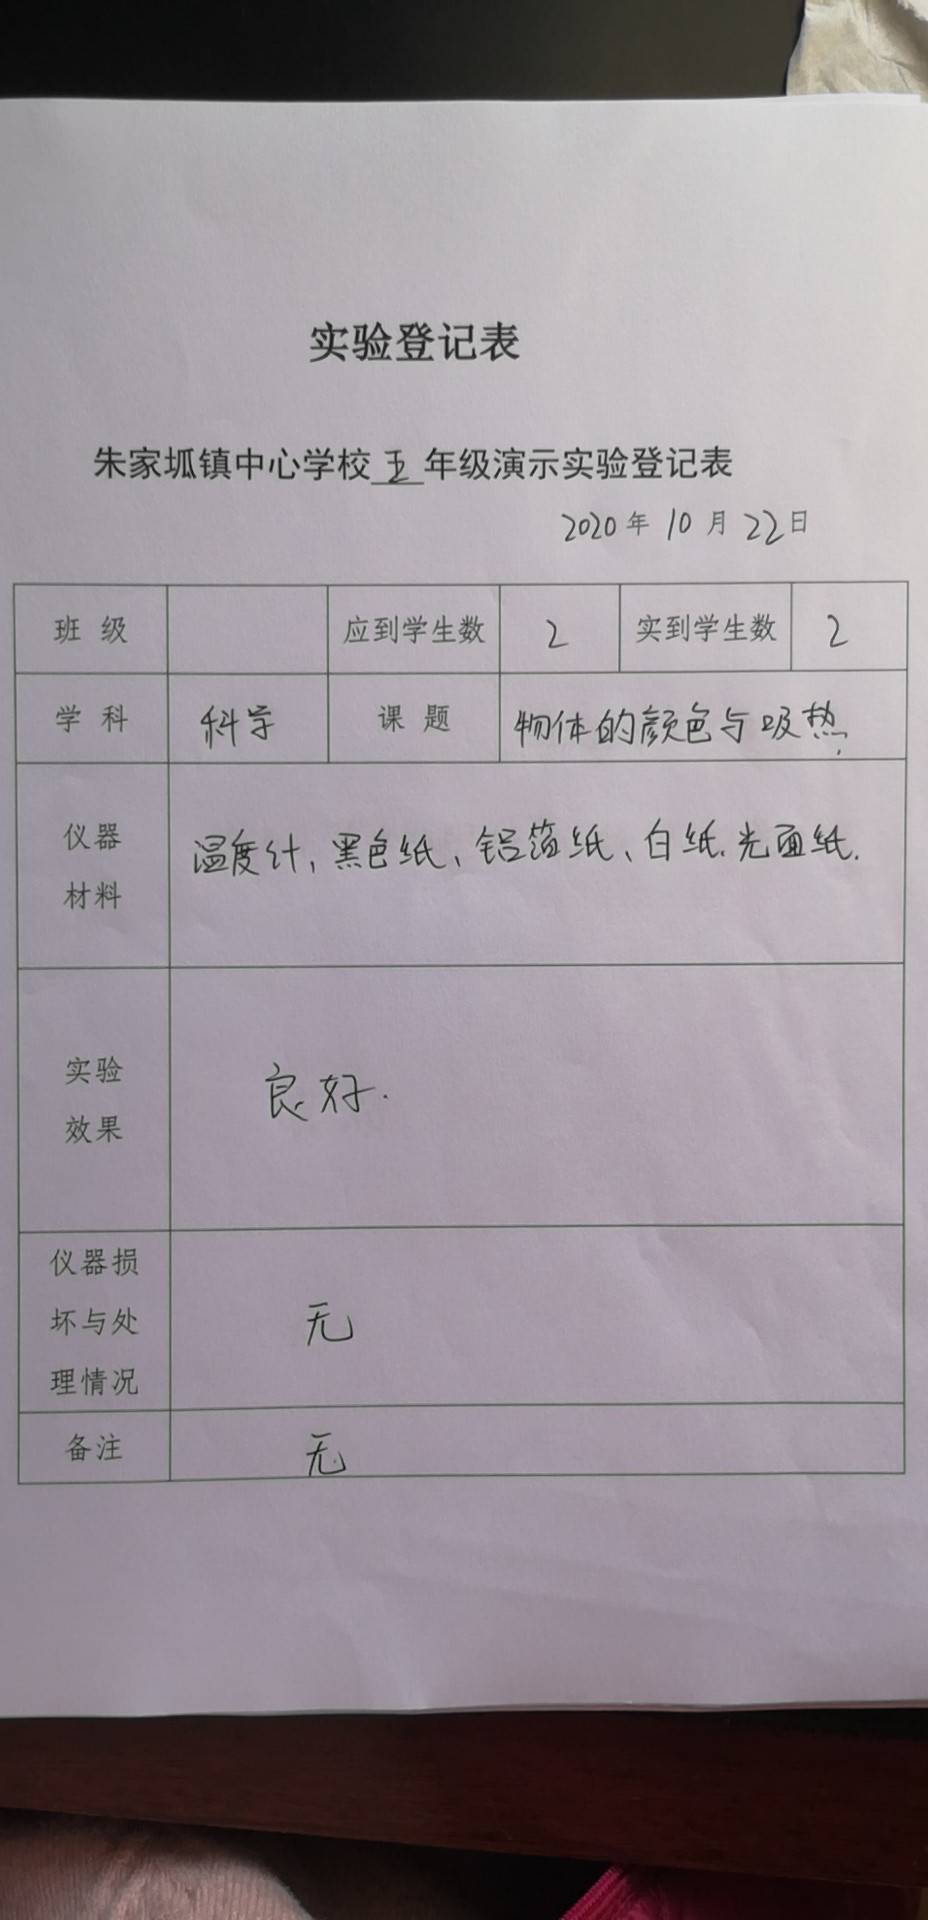 实验登记表
朱家坬镇中心学校五年级演示实验登记表
2020年10月22日
班 级 应到学生数 2 实到学生数 2
学 科 科学 课 题 物体的颜色与吸热
仪器
材料
温度计,黑色纸、铝箔纸、白纸.光面纸.
实验
效果
良好.
仪器损
坏与处
理情况
无
备注 无